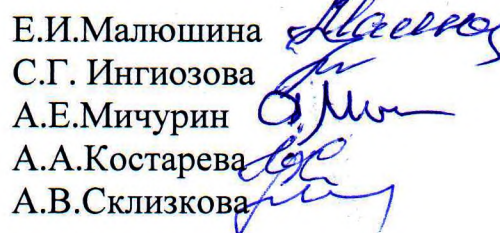 Е.И.Малюшина
С.Г. Ингиозова
А.Е.Мичурин
А.А.Костарева
А.В.Склизкова